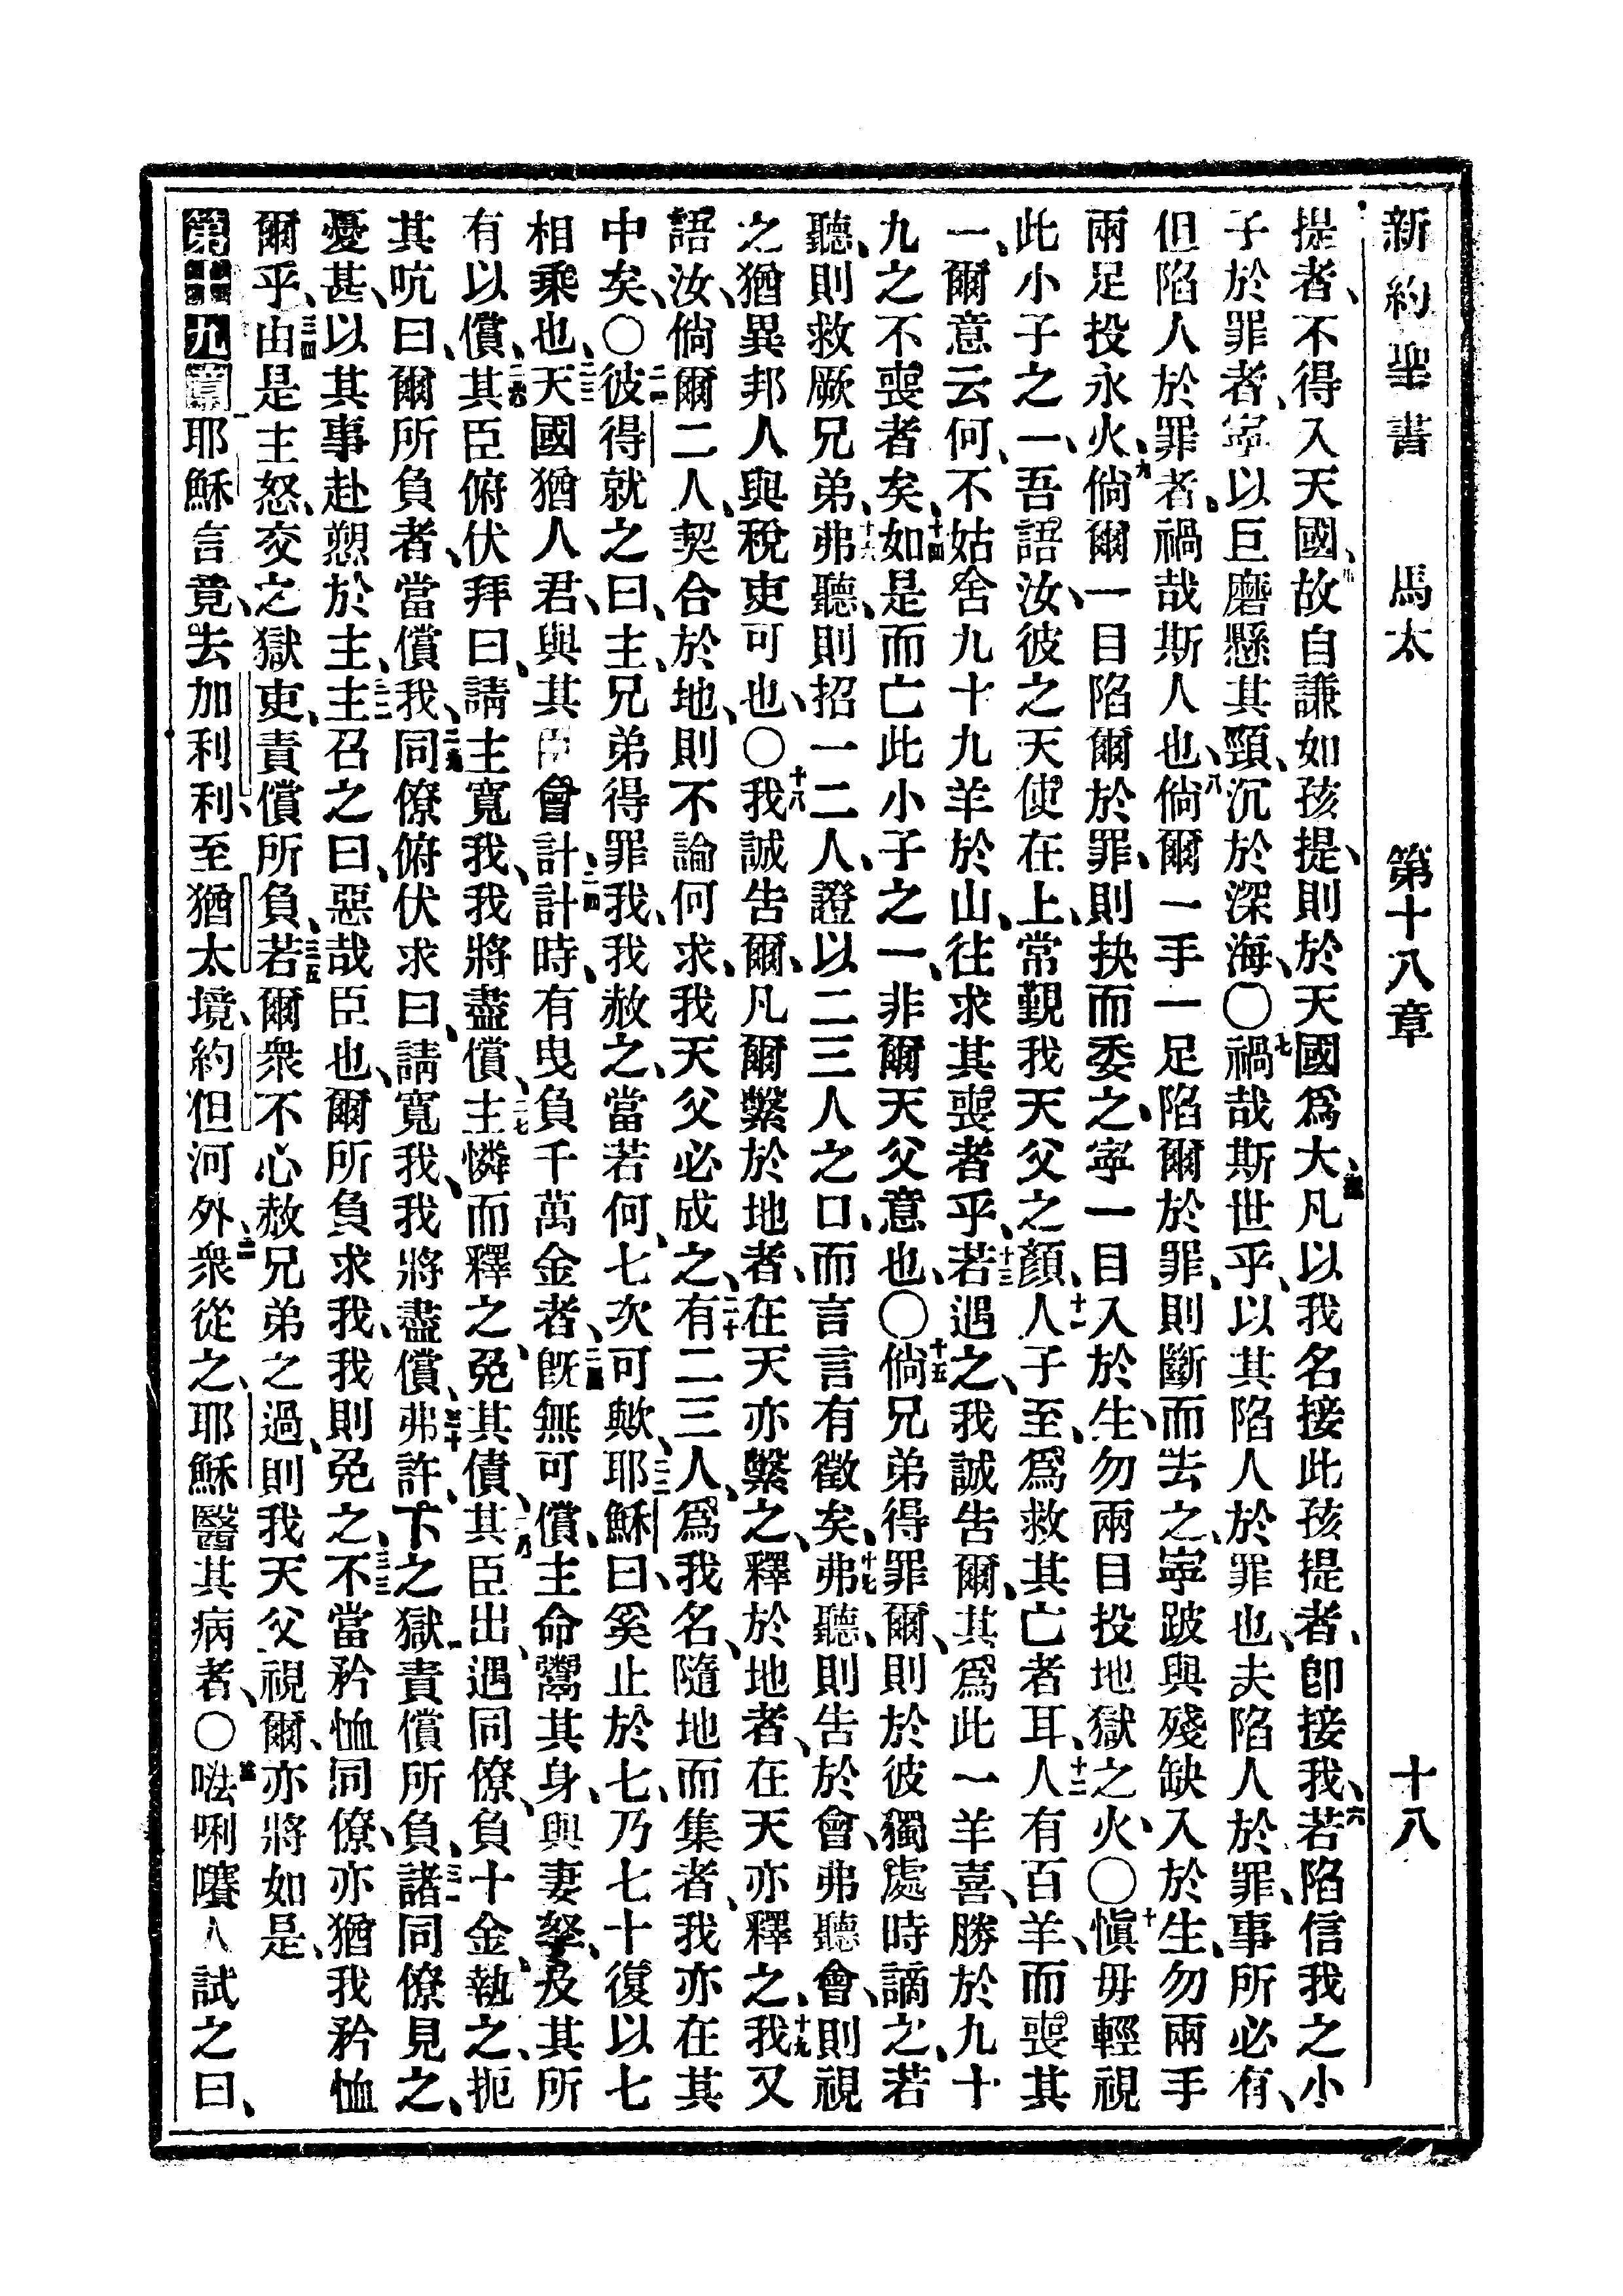 新約聖書 馬太 第十八章 十八
提者、不得入天國、四故自謙如孩提、則於天國爲大、五凡以我名接此孩提者、卽接我、六若陷信我之小
子於罪者、寧以巨磨懸其頸、沉於深海、〇七禍哉斯世乎、以其陷人於罪也、夫陷人於罪、事所必有、
但陷人於罪者、禍哉斯人也、八倘爾一手一足陷爾於罪、則斷而去之、寧跛與殘缺入於生、勿兩手
兩足投永火、九倘爾一目陷爾於罪、則抉而委之、寧一目入於生、勿兩目投地獄之火、〇十愼毋輕視
此小子之一、吾語汝、彼之天使在上、常覲我天父之顏、十一人子至、爲救其亡者耳、十二人有百羊、而喪其
一、爾意云何、不姑舍九十九羊於山、往求其喪者乎、十三若遇之、我誠告爾、其爲此一羊喜、勝於九十
九之不喪者矣、十四如是而亡此小子之一、非爾天父意也、〇十五倘兄弟得罪爾、則於彼獨處時謫之、若
聽、則救厥兄弟、十六弗聽、則招一二人、證以二三人之口、而言言有徵矣、十七弗聽、則告於會、弗聽會、則視
之猶異邦人與稅吏可也、〇十八我誠告爾、凡爾繫於地者、在天亦繫之、釋於地者、在天亦釋之、十九我又
語汝、倘爾二人、契合於地、則不論何求、我天父必成之、二十有二三人、爲我名、隨地而集者、我亦在其
中矣、〇二一彼得就之曰、主、兄弟得罪我、我赦之、當若何、七次可歟、二二耶穌曰、奚止於七、乃七十復以七
相乘也、二三天國猶人君、與其臣會計、二四計時、有曳負千萬金者、二五旣無可償、主命鬻其身、與妻孥、及其所
有以償、二六其臣俯伏拜曰、請主寬我、我將盡償、二七主憐而釋之、免其債、二八其臣出、遇同僚、負十金、執之、扼
其吭曰、爾所負者、當償我、二九同僚俯伏求曰、請寬我、我將盡償、三十弗許、下之獄、責償所負、三一諸同僚見之、
憂甚、以其事赴愬於主、三二主召之曰、惡哉臣也、爾所負求我、我則免之、三三不當矜恤同僚、亦猶我矜恤
爾乎、三四由是主怒、交之獄吏、責償所負、三五若爾衆不心赦兄弟之過、則我天父視爾、亦將如是、
第十九章 一耶穌言竟、去加利利、至猶太境、約但河外、二衆從之、耶穌醫其病者、〇三𠵽唎㘔人試之曰、